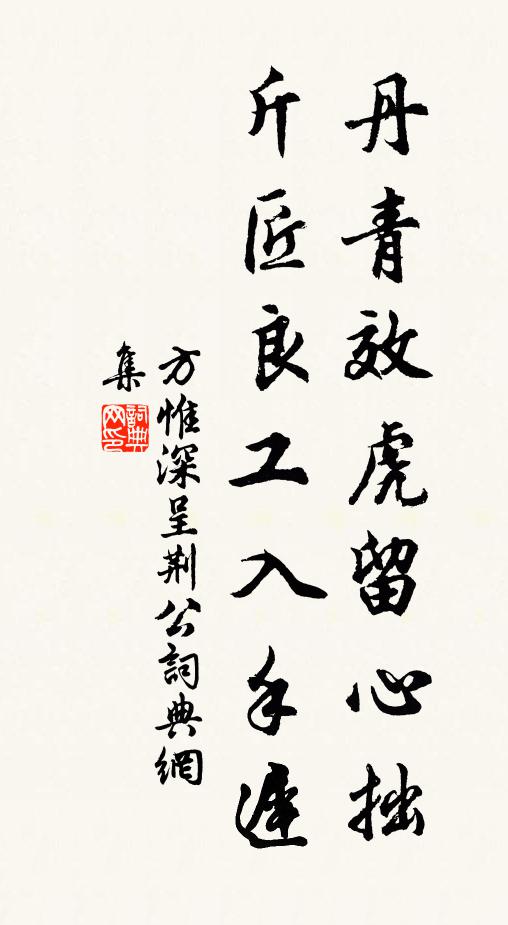 丹青效虎留心拙
斤匠良工入手遲
方惟深呈荆公詞典網
集
詞典
网印